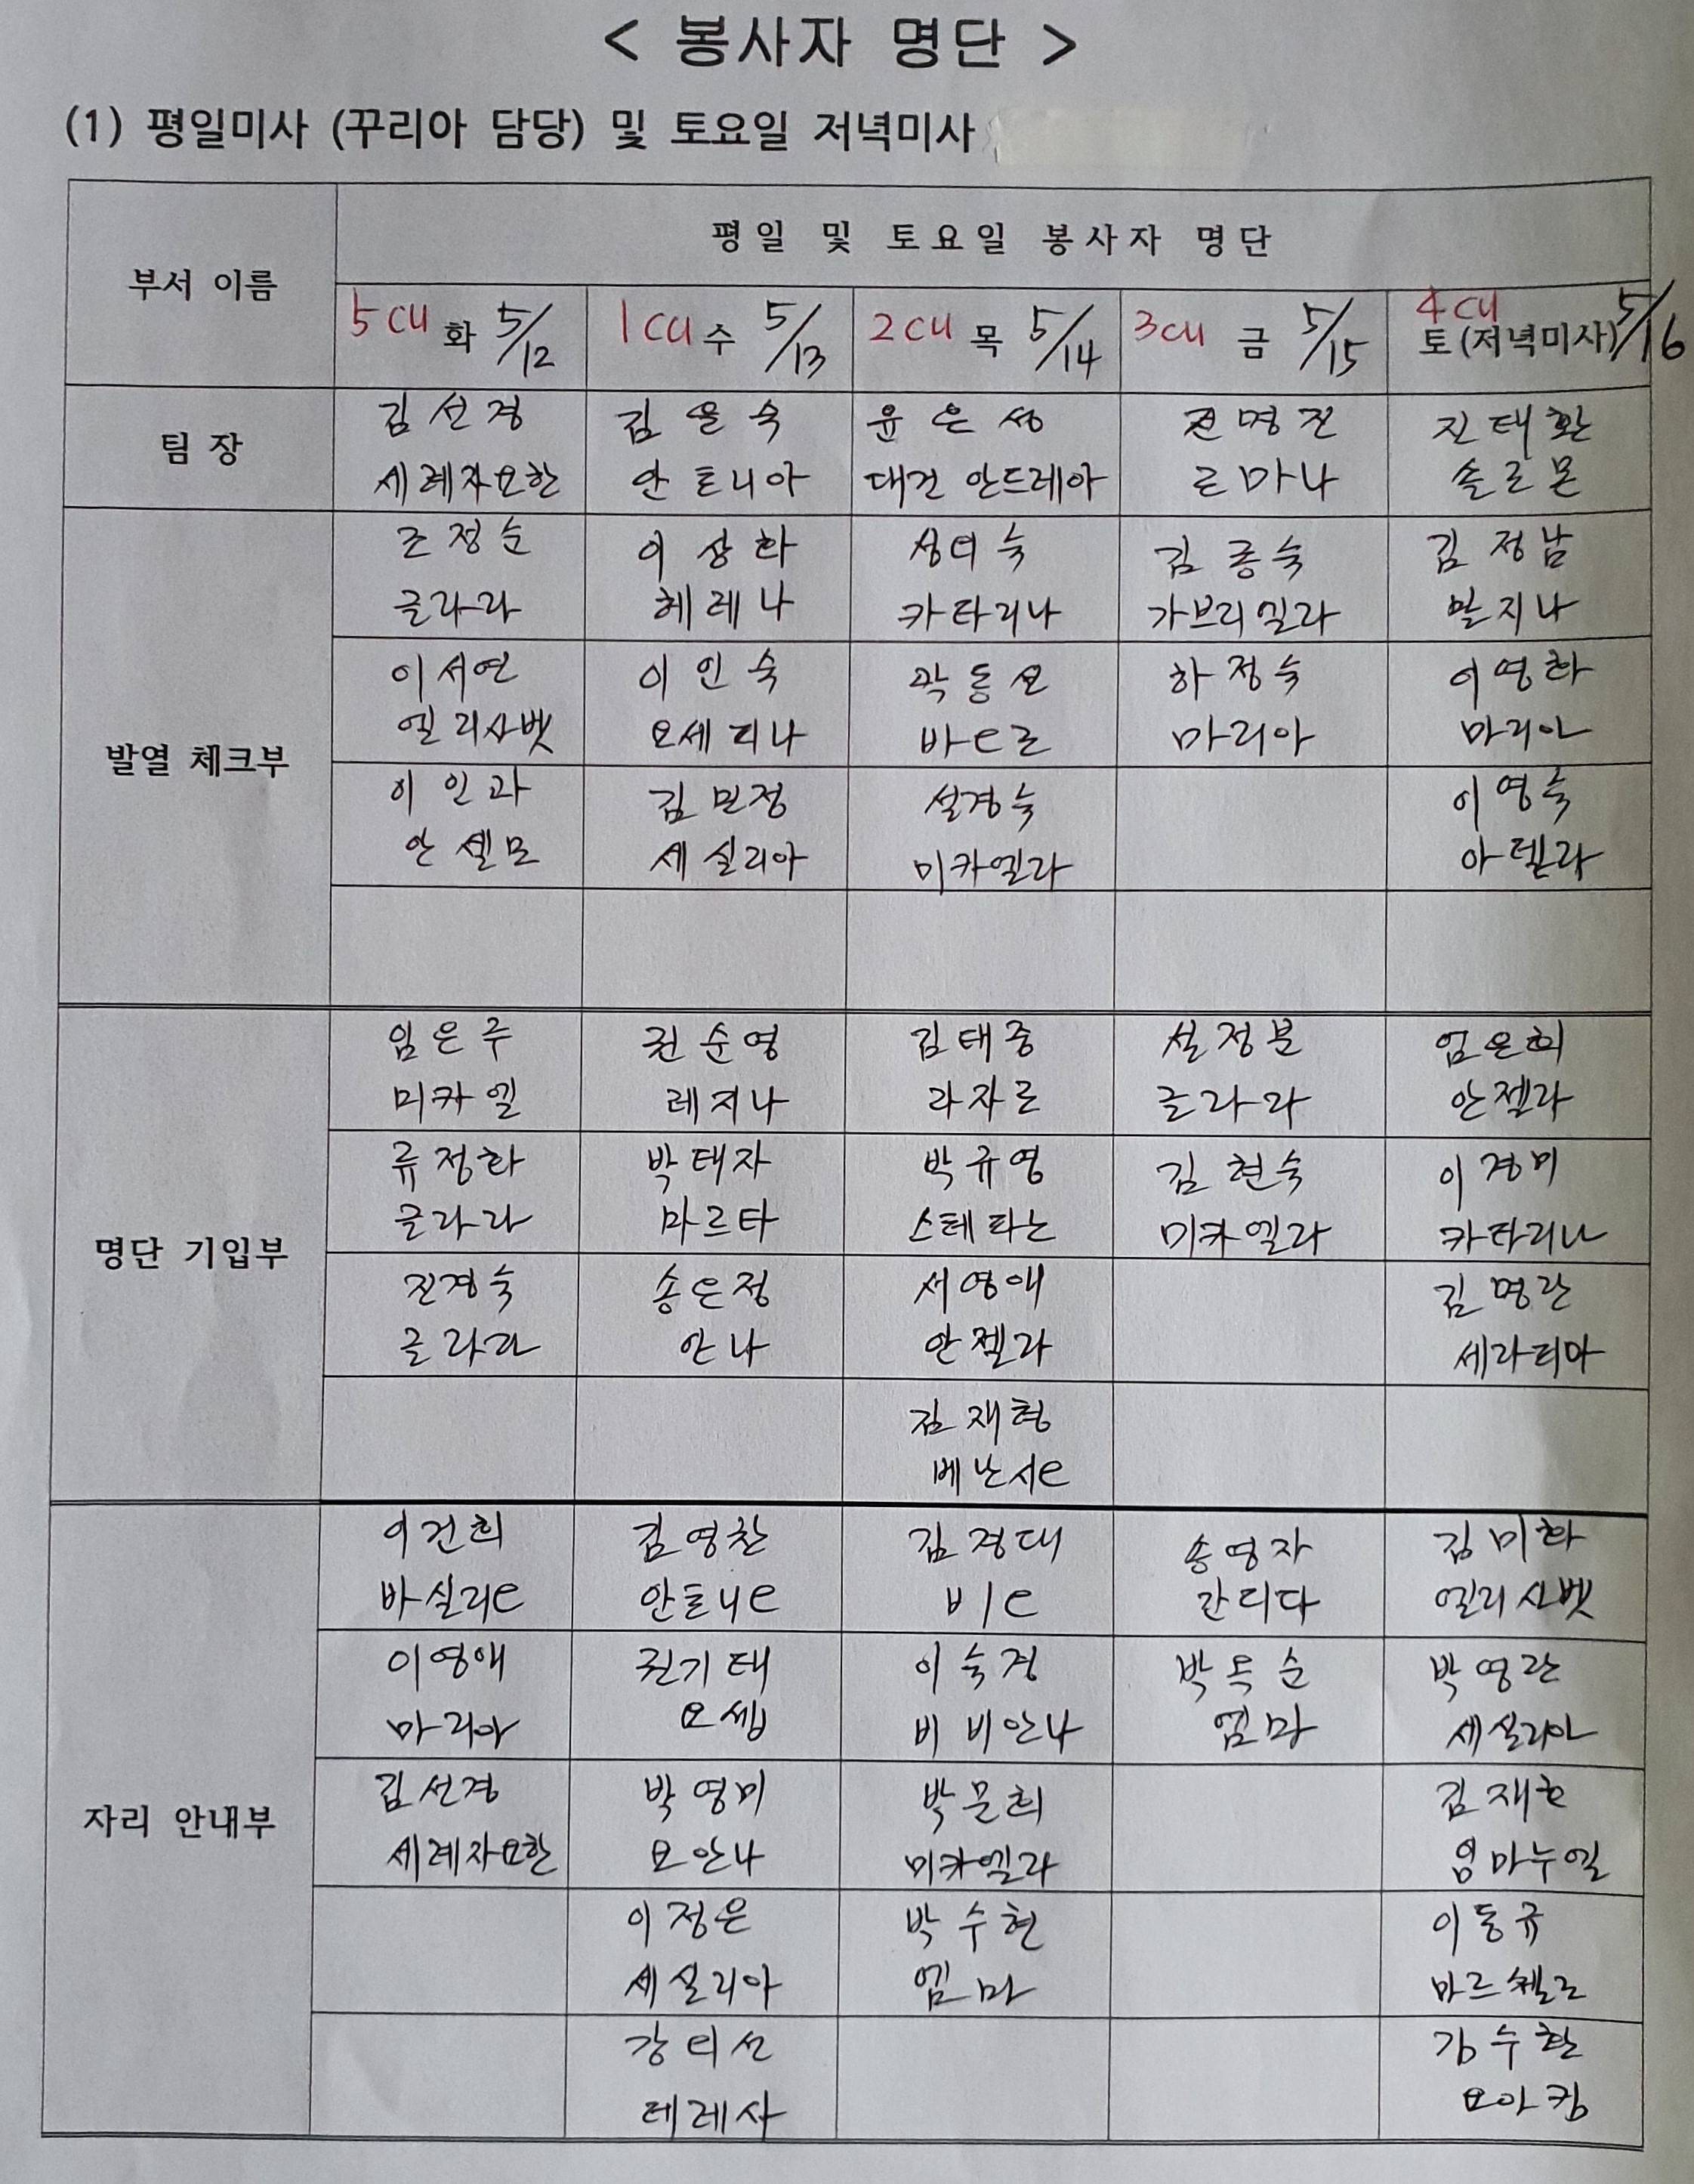 < 봉사자 명단 >
(1) 평일미사 (꾸리아 담당) 및 토요일 저녁미사
부서 이름
평일 및 토요일 봉사자 명단
5CU 화 5/12
1CU 수 5/13
2CU 목 5/14
3CU 금 5/15
4CU 토(저녁미사) 5/16
팀 장
김선경
세례자요한
김은숙
안토니아
윤은성
대건 안드레아
전명진
로마나
진태환
솔로몬
발열 체크부
조정순
글라라
이상화
헤레나
성미숙
카타리나
김종숙
가브리엘라
김정남
말지나
이서연
엘리사벳
이인숙
요세피나
곽동오
바오로
하정숙
마리아
이영화
마리아
이인과
안셀모
김민정
세실리아
설경숙
미카엘라
이영숙
아델라
명단 기입부
임은주
미카엘
권순영
레지나
김태중
라자로
설정분
글라라
엄은희
안젤라
류정화
글라라
박태자
마르타
박규영
스테파노
김현숙
미카엘라
이경미
카타리나
진경숙
글라라
송은정
안나
서영애
안젤라
김명란
세라피마
김재형
베난시오
자리 안내부
이건희
바실리오
김영찬
안토니오
김경대
비오
송영자
간디다
김미화
엘리사벳
이영애
마리아
권기태
요셉
이숙경
비비안나
박득순
엠마
박영란
세실리아
김선경
세례자요한
박영미
요안나
박문희
미카엘라
김재호
임마누엘
이정은
세실리아
박수현
엠마
이동규
마르첼로
강미선
테레사
김수환
요아킴